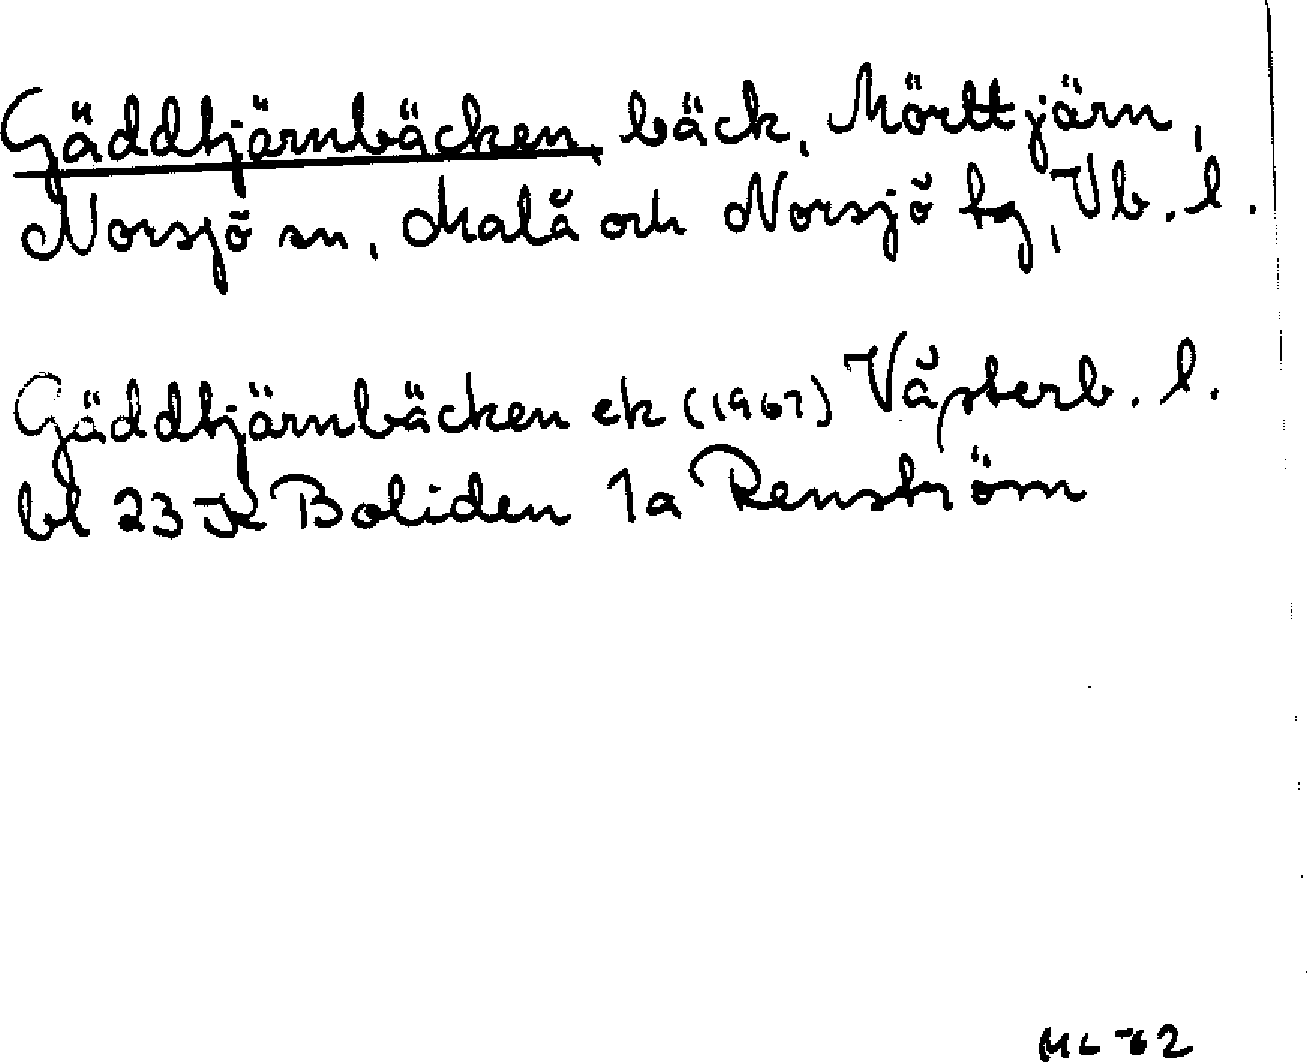 Gäddtjärnbäcken, bäck, Mörttjärn,
Norsjö sn, Malå och Norsjö tg, Vb. l.
Gäddtjärnbäcken ek (1967) Västerb. l.
bl 23 K Boliden 1a Renström